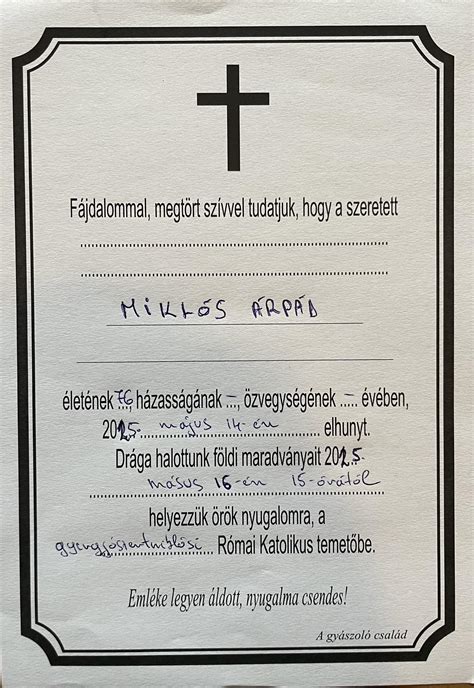 Fájdalommal, megtört szívvel tudatjuk, hogy a szeretett
MIKLÓS ÁRPÁD
életének 76, házasságának –, özvegységének – évében,
2025. május 14-én elhunyt.
Drága halottunk földi maradványait 2025.
május 16-én 15-órától
helyezzük örök nyugalomra, a
gyergyószentmiklósi Római Katolikus temetőbe.
Emléke legyen áldott, nyugalma csendes!
A gyászoló család